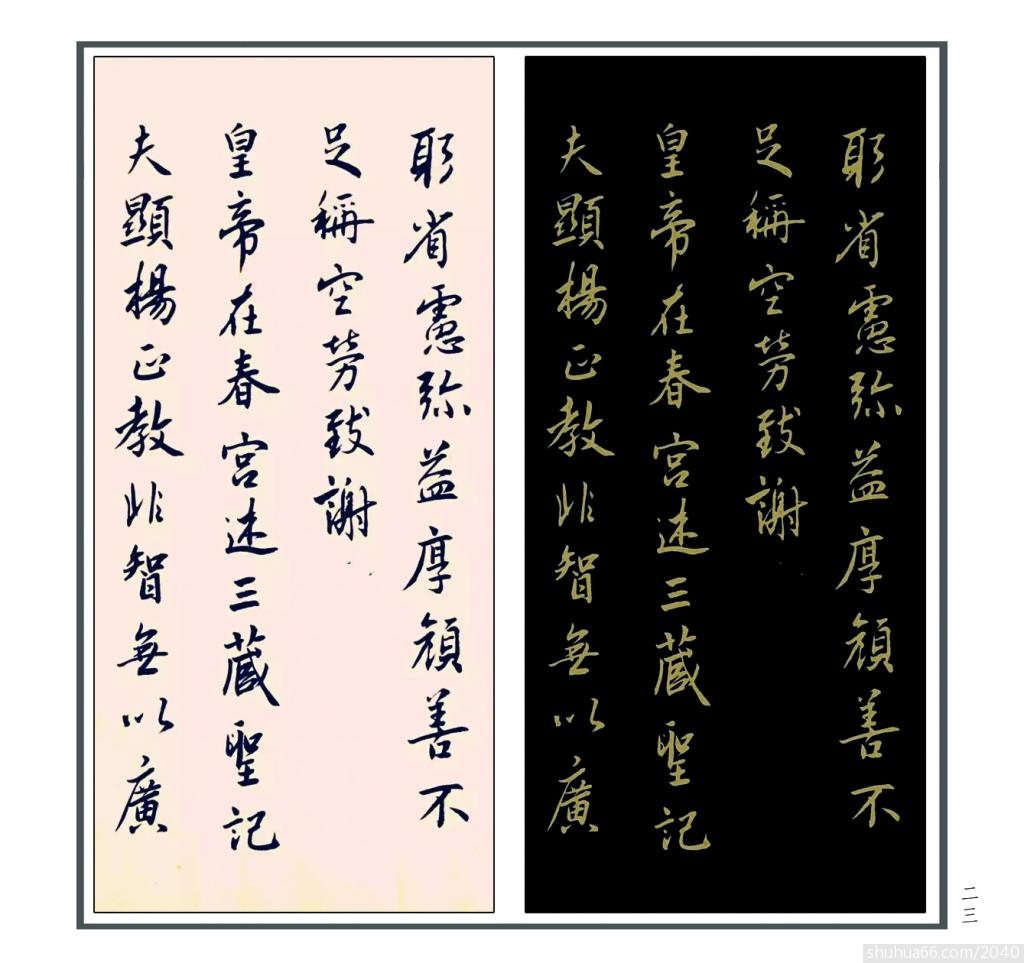 躬省慮弥益厚顏善不
足稱空勞致謝
皇帝在春宮述三藏聖記
夫顯楊正教非智無以廣
躬省慮弥益厚顏善不
足稱空勞致謝
皇帝在春宮述三藏聖記
夫顯楊正教非智無以廣
二三
shuhua66.com/2040